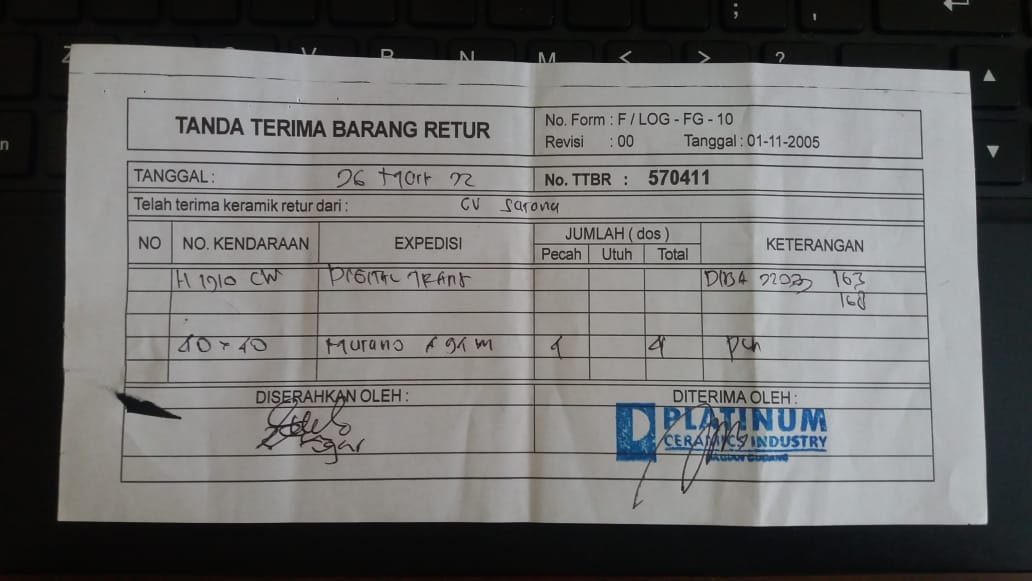 TANDA TERIMA BARANG RETUR
No. Form : F / LOG - FG - 10
Revisi : 00 Tanggal : 01-11-2005
TANGGAL : 26 Mart 22
No. TTBR : 570411
Telah terima keramik retur dari : CV Sarona
NO NO. KENDARAAN EXPEDISI JUMLAH ( dos ) KETERANGAN
Pecah Utuh Total
H 1910 CW DIGITAL TRANS 163
168
40 x 40 Murano 4 4
DISERAHKAN OLEH : DITERIMA OLEH :
PLATINUM
CERAMICS INDUSTRY